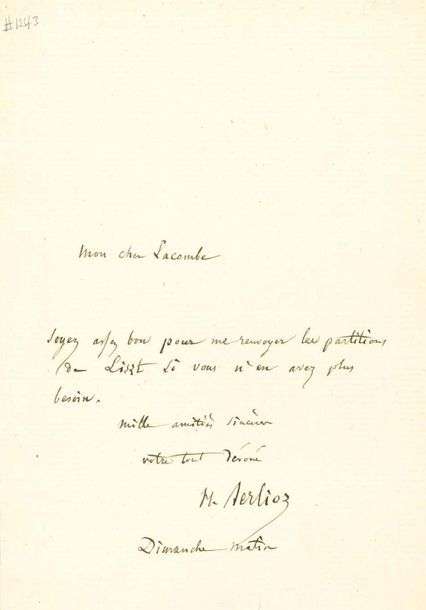 #1243
Mon cher Lacombe
Soyez assez bon pour me renvoyer les partitions
de Liszt si vous n'en avez plus
besoin.
Mille amitiés sincères
votre tout dévoué
H. Berlioz
Dimanche matin